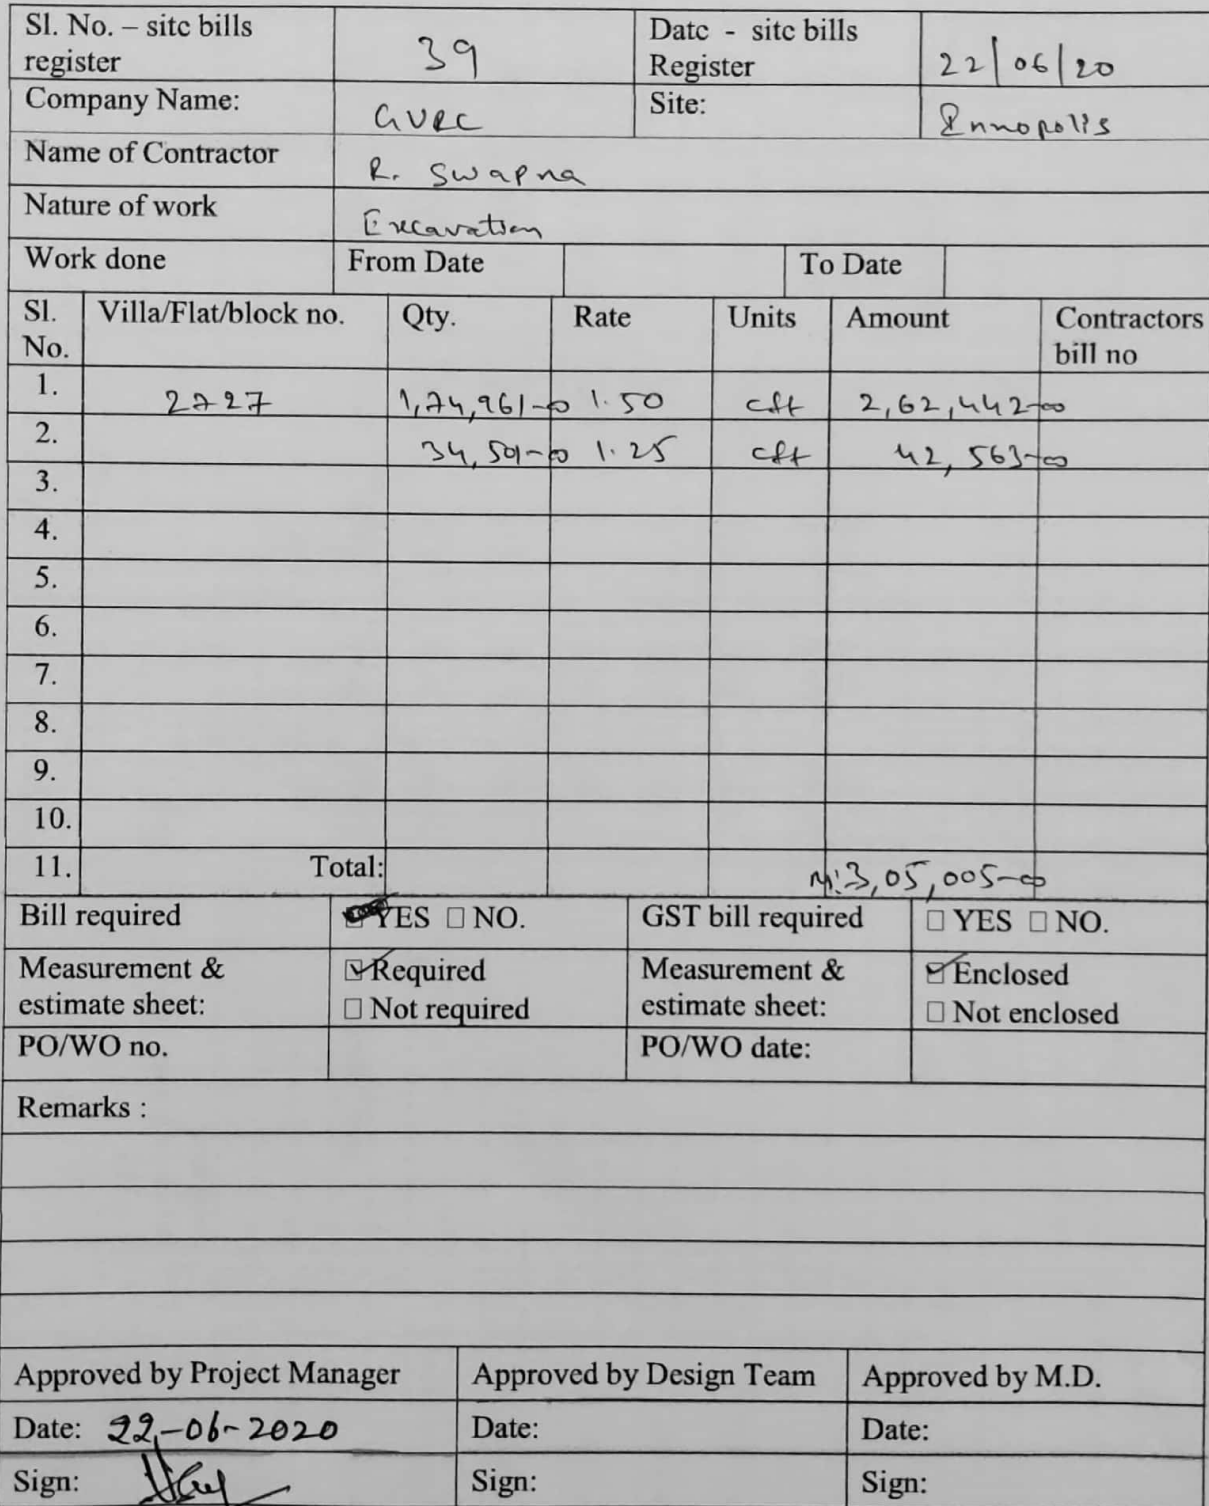 Sl. No. – site bills register 39 Date - site bills Register 22/06/20
Company Name: GVRC Site: Innopolis
Name of Contractor R. Swapna
Nature of work Excavation
Work done From Date To Date
Sl. No. Villa/Flat/block no. Qty. Rate Units Amount Contractors bill no
1. 2727 1,74,961-00 1.50 cft 2,62,442-00
2. 34,501-00 1.25 cft 42,563-00
3.
4.
5.
6.
7.
8.
9.
10.
11. Total: 3,05,005-00
Bill required ☑ YES □ NO. GST bill required □ YES □ NO.
Measurement & estimate sheet: ☑ Required □ Not required Measurement & estimate sheet: ☑ Enclosed □ Not enclosed
PO/WO no. PO/WO date:
Remarks :
Approved by Project Manager Approved by Design Team Approved by M.D.
Date: 22-06-2020 Date: Date:
Sign: Sign: Sign: